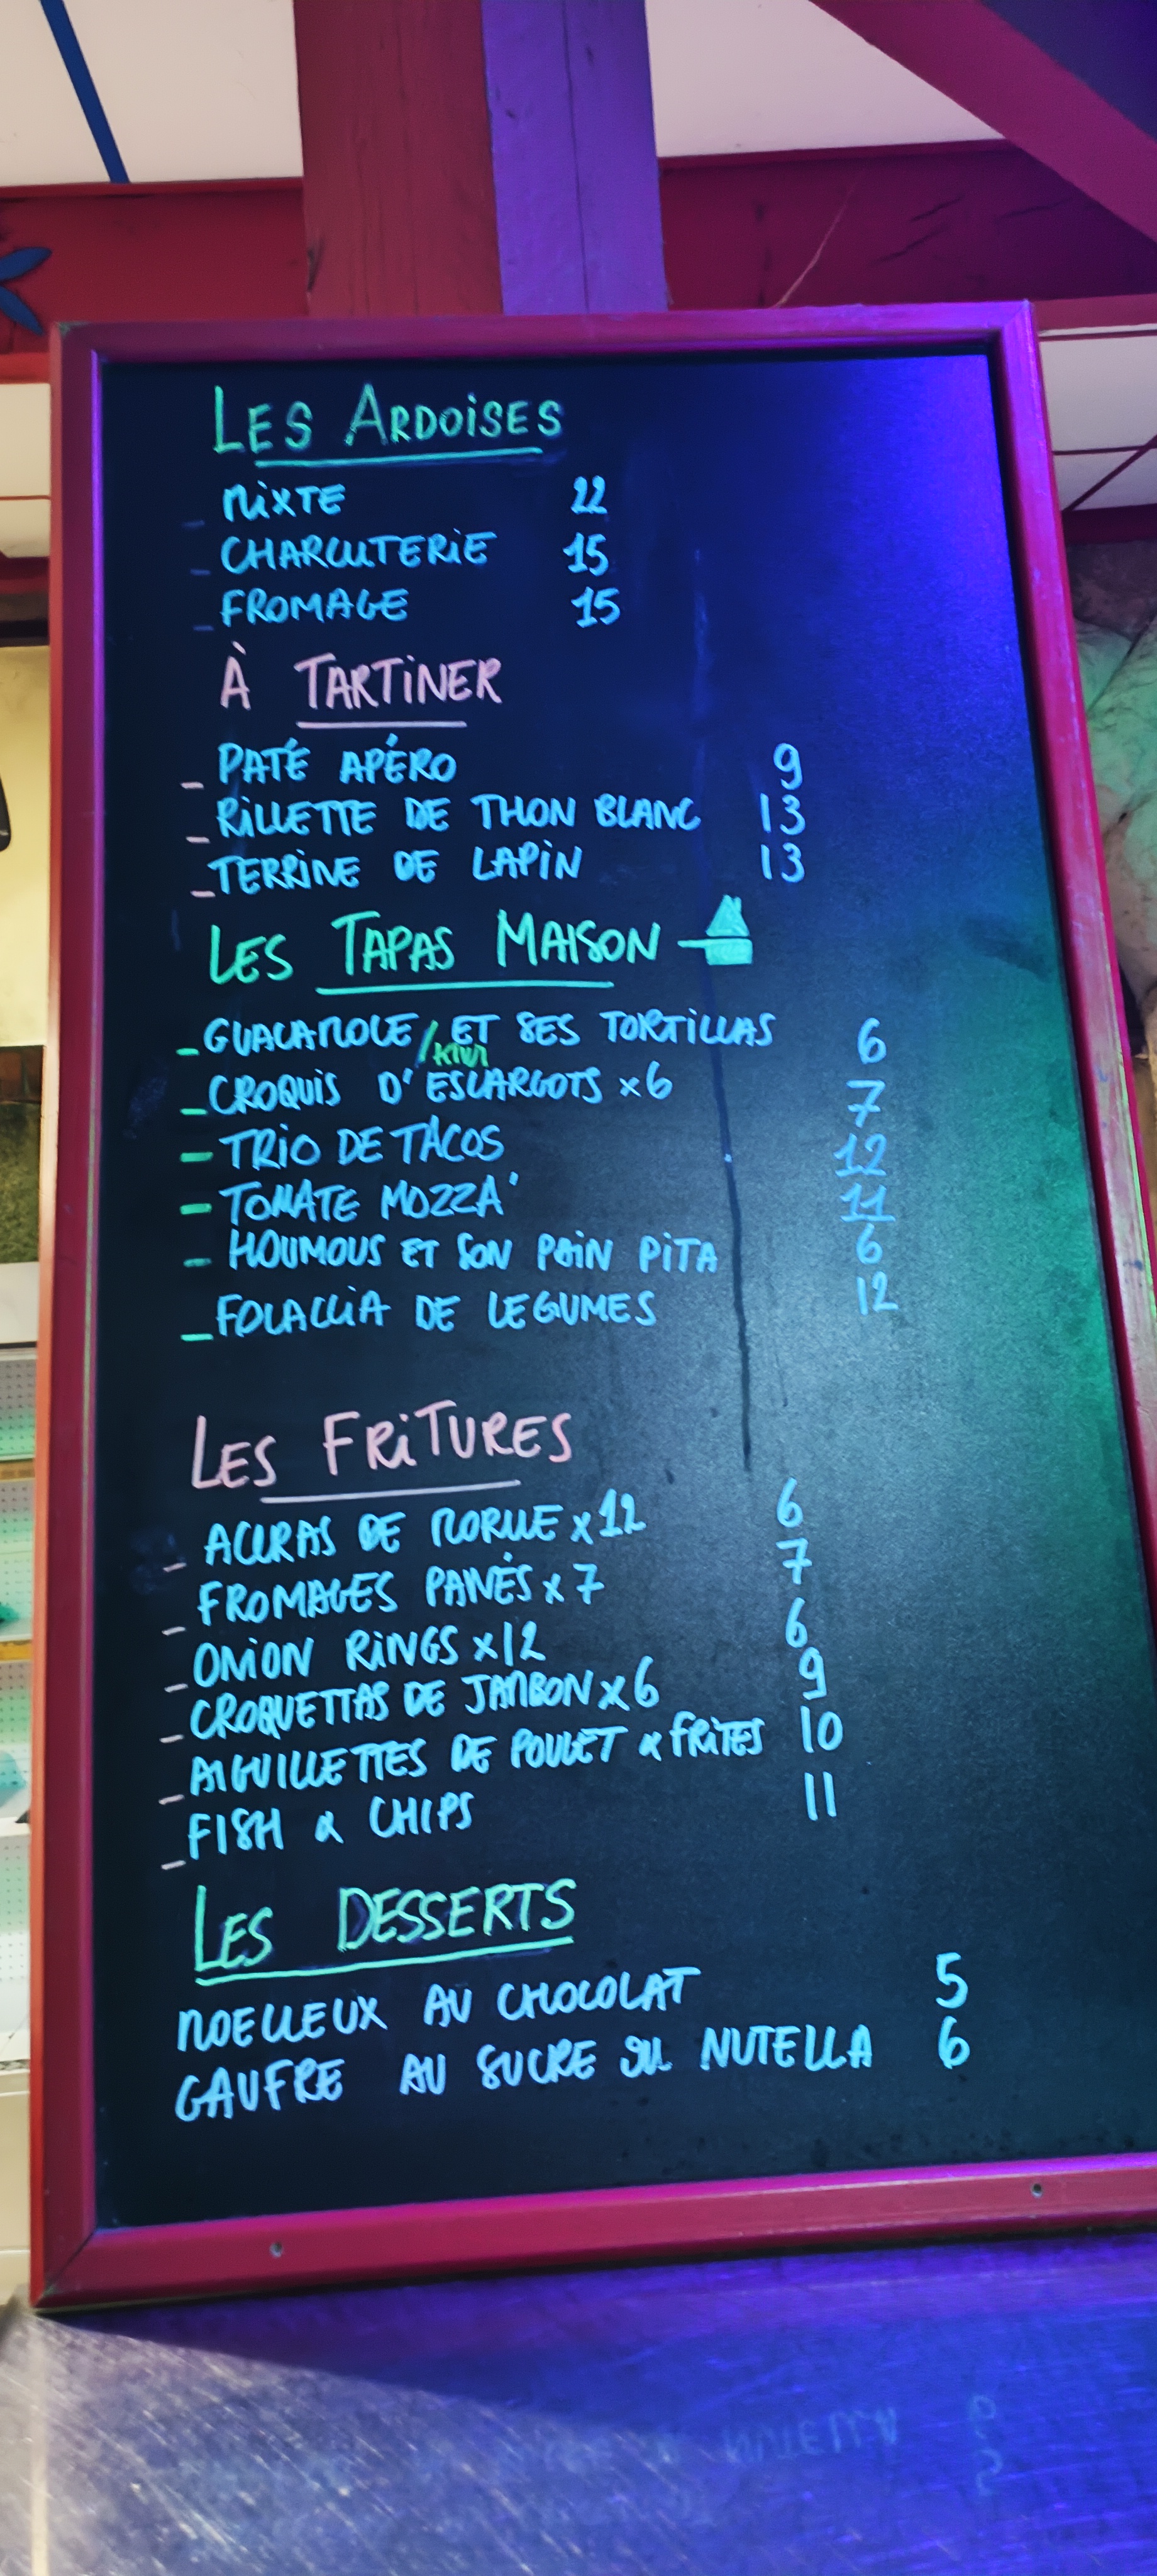 LES ARDOISES
_ MIXTE 22
_ CHARCUTERIE 15
_ FROMAGE 15
À TARTINER
_ PATÉ APÉRO 9
_ RILLETTE DE THON BLANC 13
_ TERRINE DE LAPIN 13
LES TAPAS MAISON
_ GUACAMOLE / ET SES TORTILLAS 6
KIWI
_ CROQUIS D'ESCARGOTS x6 7
- TRIO DE TACOS 12
- TOMATE MOZZA' 11
- HOUMOUS ET SON PAIN PITA 6
_ FOCACCIA DE LEGUMES 12
LES FRITURES
_ ACCRAS DE MORUE x12 6
_ FROMAGES PANÉS x7 7
_ ONION RINGS x12 6
_ CROQUETTAS DE JAMBON x6 9
_ AIGUILLETTES DE POULET & FRITES 10
_ FISH & CHIPS 11
LES DESSERTS
MOELLEUX AU CHOCOLAT 5
GAUFRE AU SUCRE OU NUTELLA 6